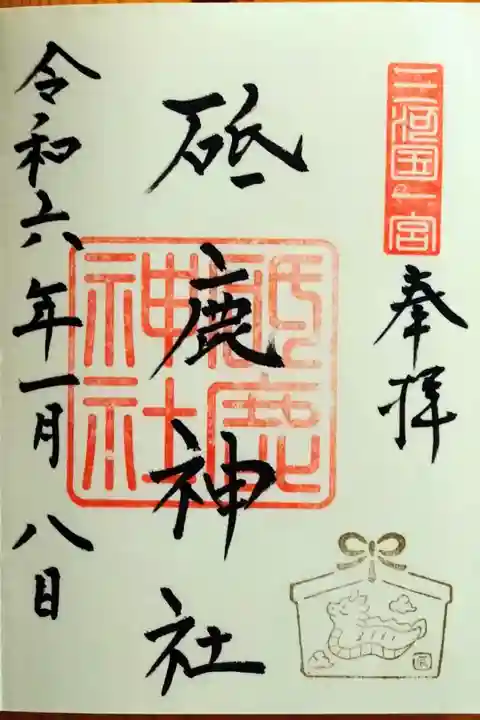 三河国一宮
奉拝
砥鹿神社
砥鹿神社
令和六年一月八日
辰